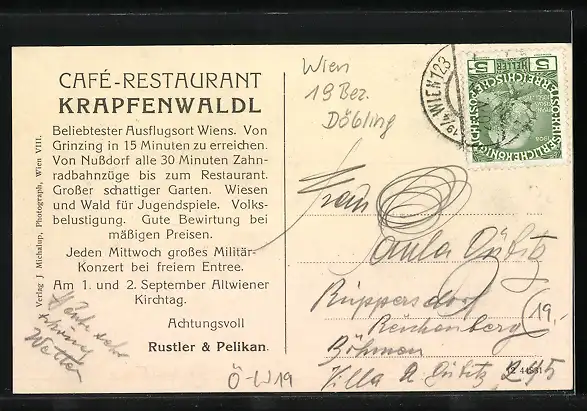 CAFÉ-RESTAURANT
KRAPFENWALDL
Beliebtester Ausflugsort Wiens. Von
Grinzing in 15 Minuten zu erreichen.
Von Nußdorf alle 30 Minuten Zahn-
radbahnzüge bis zum Restaurant.
Großer schattiger Garten. Wiesen
und Wald für Jugendspiele. Volks-
belustigung. Gute Bewirtung bei
mäßigen Preisen.
Jeden Mittwoch großes Militär-
Konzert bei freiem Entree.
Am 1. und 2. September Altwiener
Kirchtag.
Achtungsvoll
Rustler & Pelikan.
Verlag J. Michalup, Photograph, Wien VIII.
Heute sehr
schönes
Wetter
Ö-W19
Wien
19 Bez.
Döbling
WIEN 123
5 HELLER 5
Frau
Paula Gübitz
Rüppersdorf
Reichenberg
Böhmen
Villa A. Gübitz
19.-